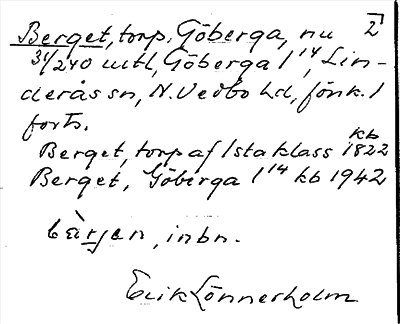 Berget, torp, Göberga, nu 2
31/240 mtl, Göberga 1 14, Lin-
deråssn, N. Vedbo hd, Jönk. l
forts.
Berget, torp af 1sta klass kb 1822
Berget, Göberga 1 14 kb 1942
bärjen, inbn.
Erik Lönnerholm